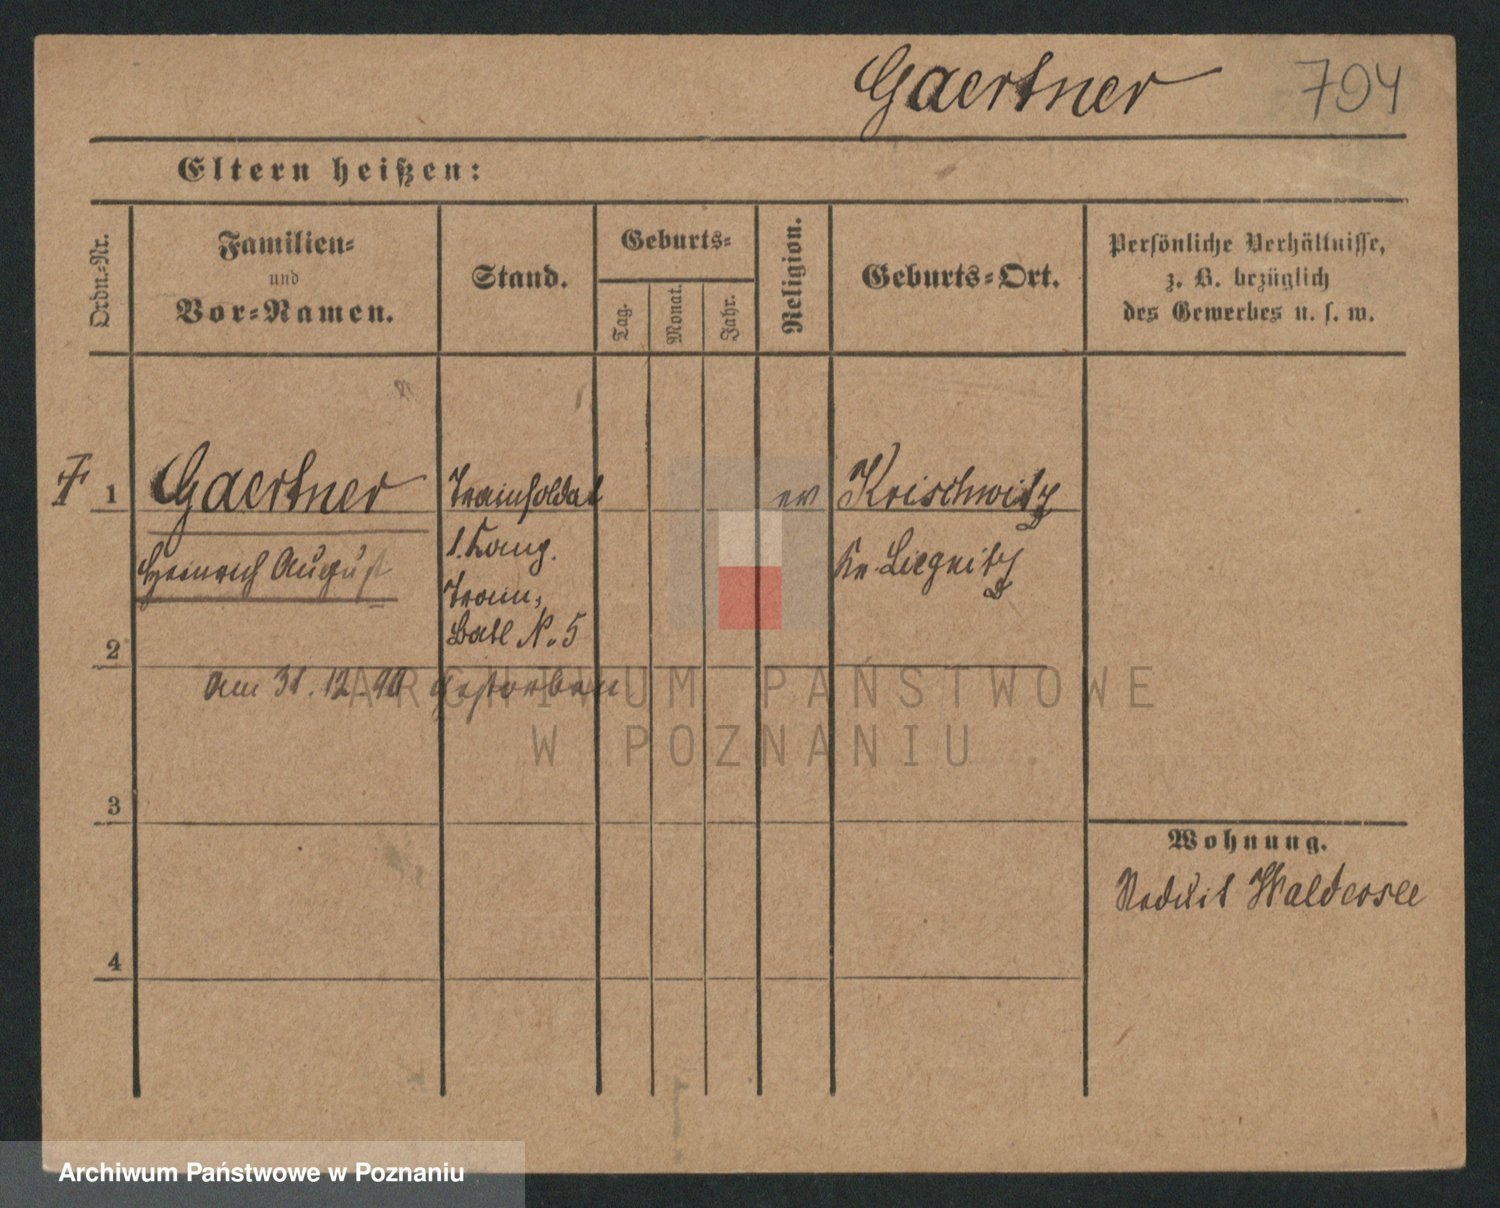 Gaertner 794
Eltern heißen:
Ordn.=Nr.
Familien=
und
Vor=Namen.
Stand.
Geburts=
Tag.
Monat.
Jahr.
Religion.
Geburts=Ort.
Persönliche Verhältnisse,
z. B. bezüglich
des Gewerbes u. s. w.
1 Gaertner Trainsoldat ev Krischwitz
Heinrich August 1. Comp. Kr. Liegnitz
Train=
Batl N. 5
2
Am 31. 12. 90 gestorben
3
Wohnung.
Reduit Waldersee
4
ARCHIWUM PAŃSTWOWE
W POZNANIU
Archiwum Państwowe w Poznaniu